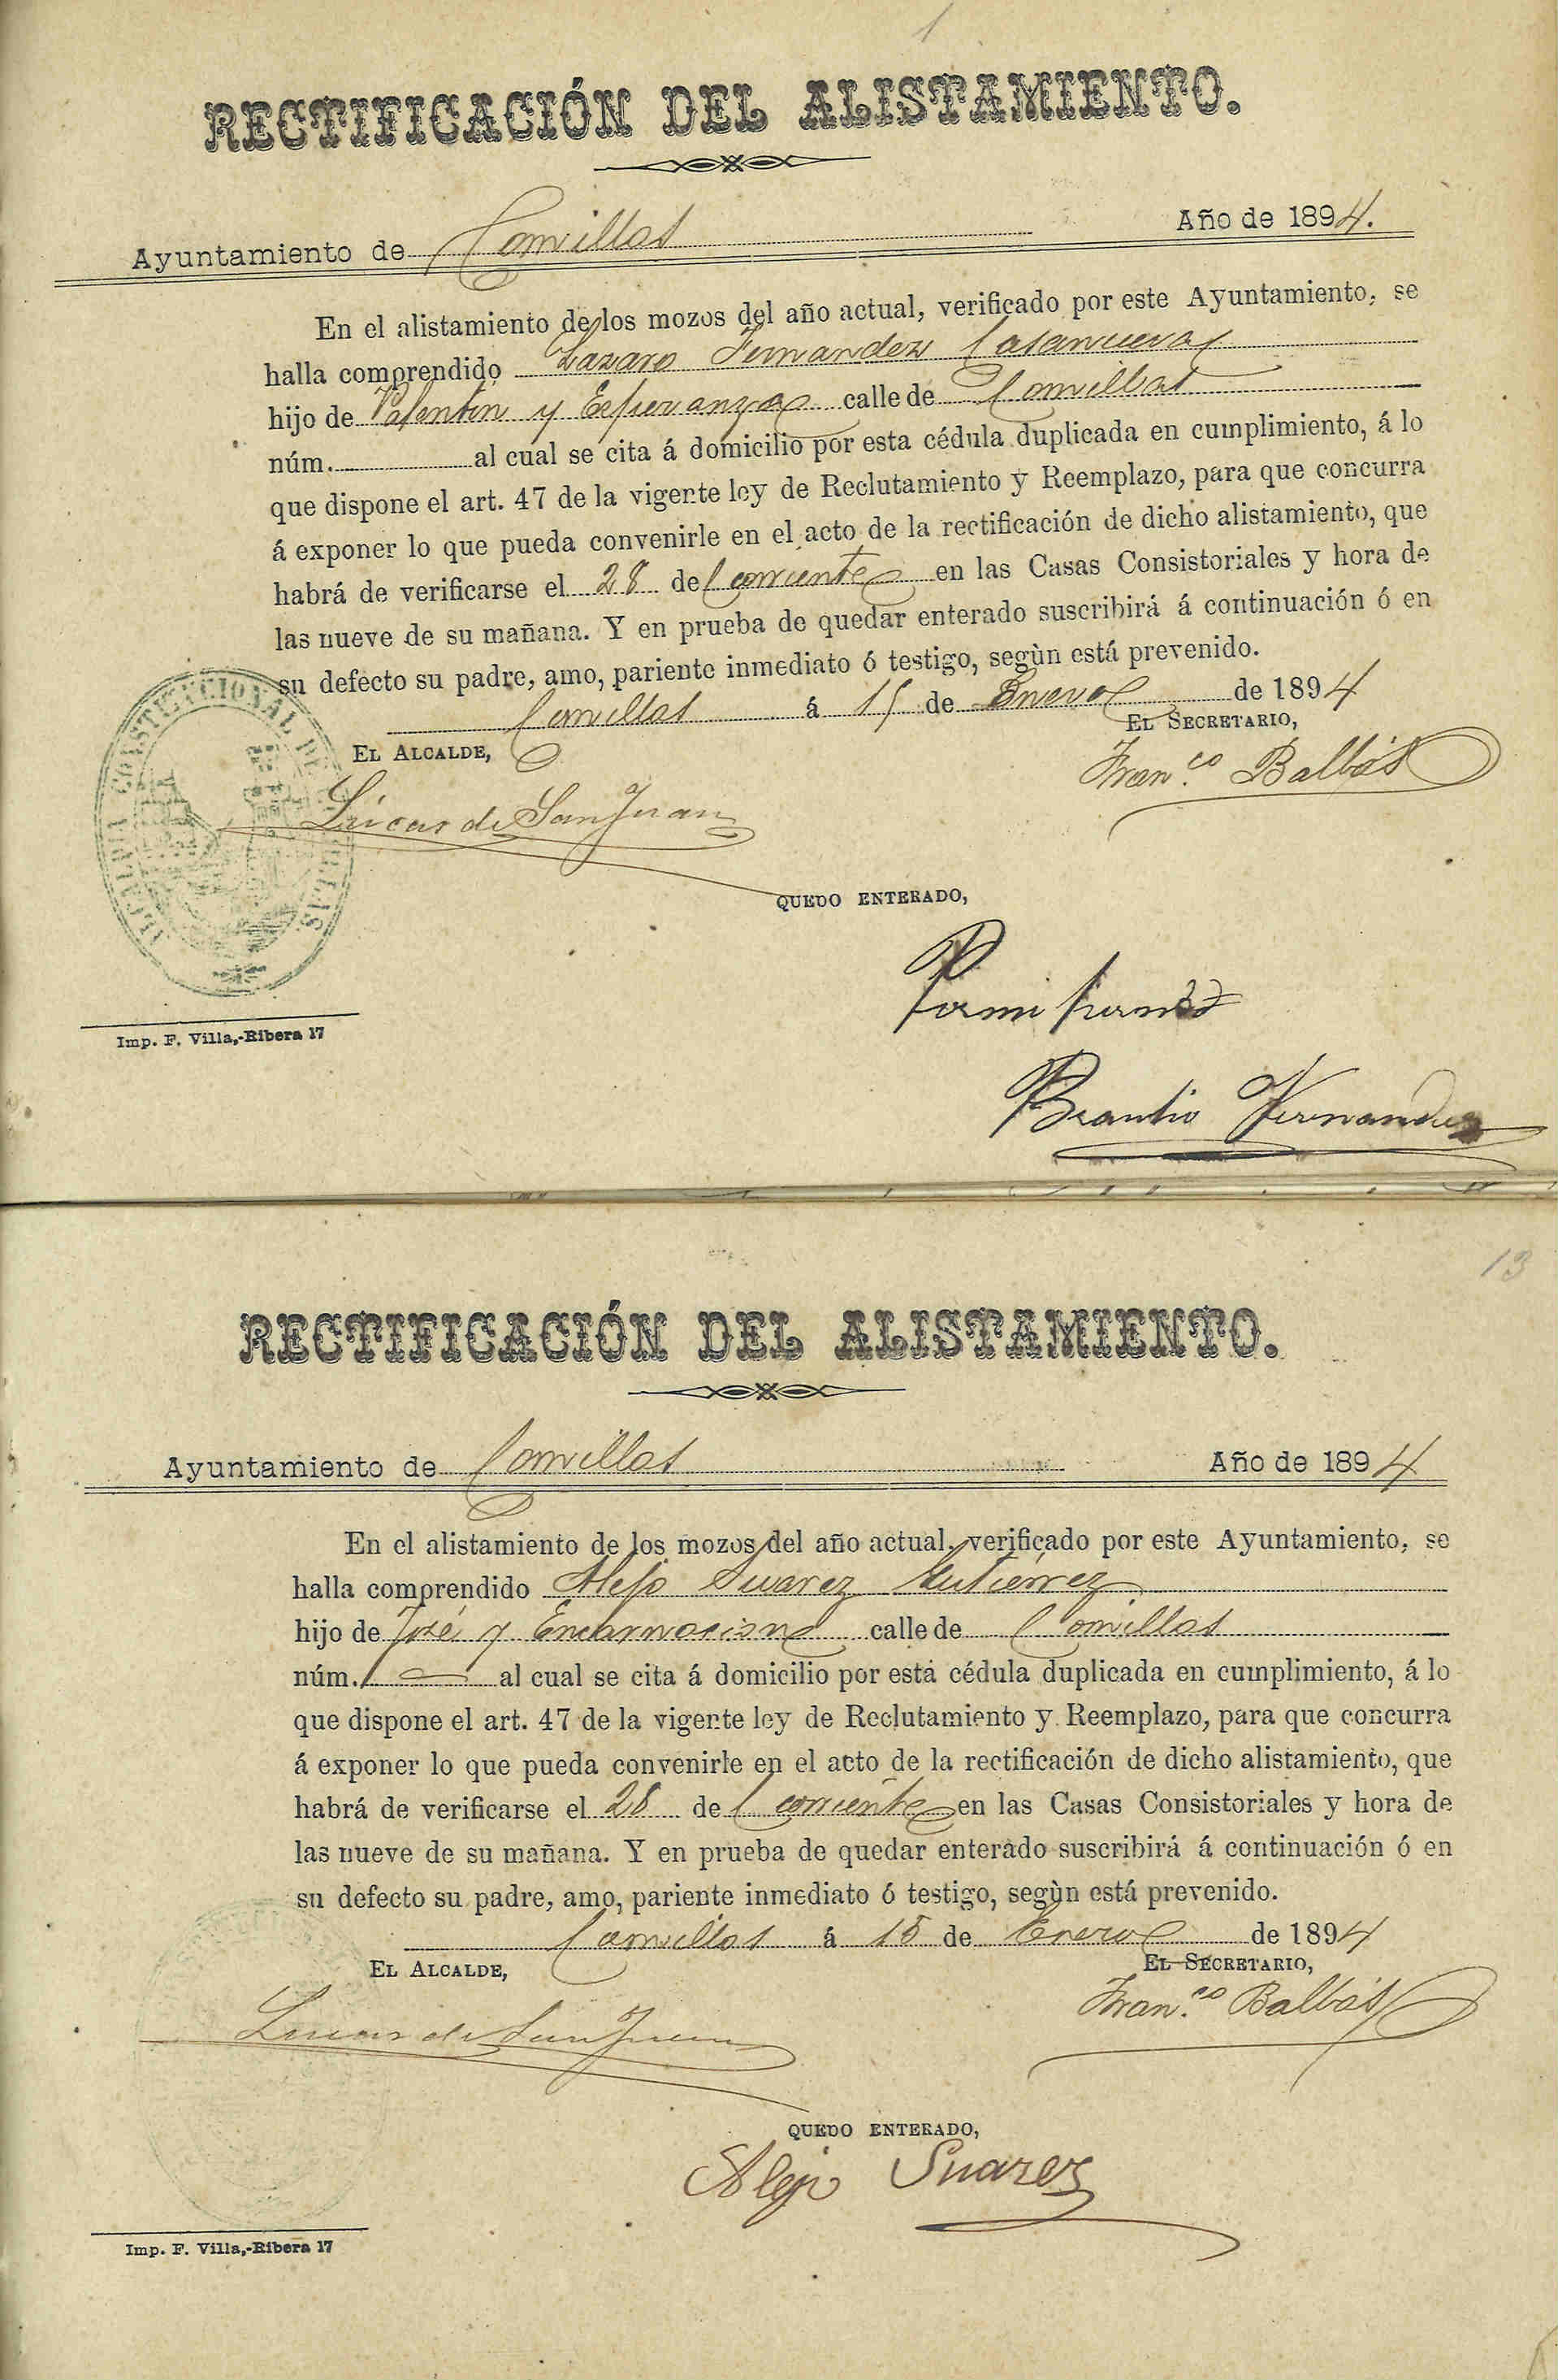 1
RECTIFICACIÓN DEL ALISTAMIENTO.
Ayuntamiento de Comillas Año de 1894.
En el alistamiento de los mozos del año actual, verificado por este Ayuntamiento, se
halla comprendido Lazaro Fernandez Casanueva
hijo de Valentin y Esperanza calle de Comillas
núm. al cual se cita á domicilio por esta cédula duplicada en cumplimiento, á lo
que dispone el art. 47 de la vigente ley de Reclutamiento y Reemplazo, para que concurra
á exponer lo que pueda convenirle en el acto de la rectificación de dicho alistamiento, que
habrá de verificarse el 28 del corriente en las Casas Consistoriales y hora de
las nueve de su mañana. Y en prueba de quedar enterado suscribirá á continuación ó en
su defecto su padre, amo, pariente inmediato ó testigo, segùn está prevenido.
Comillas á 15 de Enero de 1894
EL ALCALDE, EL SECRETARIO,
Lúcas de San Juan Fran.co Balbás
QUEDO ENTERADO,
Braulio Fernandez
Imp. F. Villa,-Ribera 17
13
RECTIFICACIÓN DEL ALISTAMIENTO.
Ayuntamiento de Comillas Año de 1894
En el alistamiento de los mozos del año actual, verificado por este Ayuntamiento, se
halla comprendido Alejo Suarez Gutiérrez
hijo de José y Encarnacion calle de Comillas
núm. al cual se cita á domicilio por esta cédula duplicada en cumplimiento, á lo
que dispone el art. 47 de la vigente ley de Reclutamiento y Reemplazo, para que concurra
á exponer lo que pueda convenirle en el acto de la rectificación de dicho alistamiento, que
habrá de verificarse el 28 del corriente en las Casas Consistoriales y hora de
las nueve de su mañana. Y en prueba de quedar enterado suscribirá á continuación ó en
su defecto su padre, amo, pariente inmediato ó testigo, segùn está prevenido.
Comillas á 15 de Enero de 1894
EL ALCALDE, EL SECRETARIO,
Lucas de San Juan Fran.co Balbás
QUEDO ENTERADO,
Alejo Suarez
Imp. F. Villa,-Ribera 17